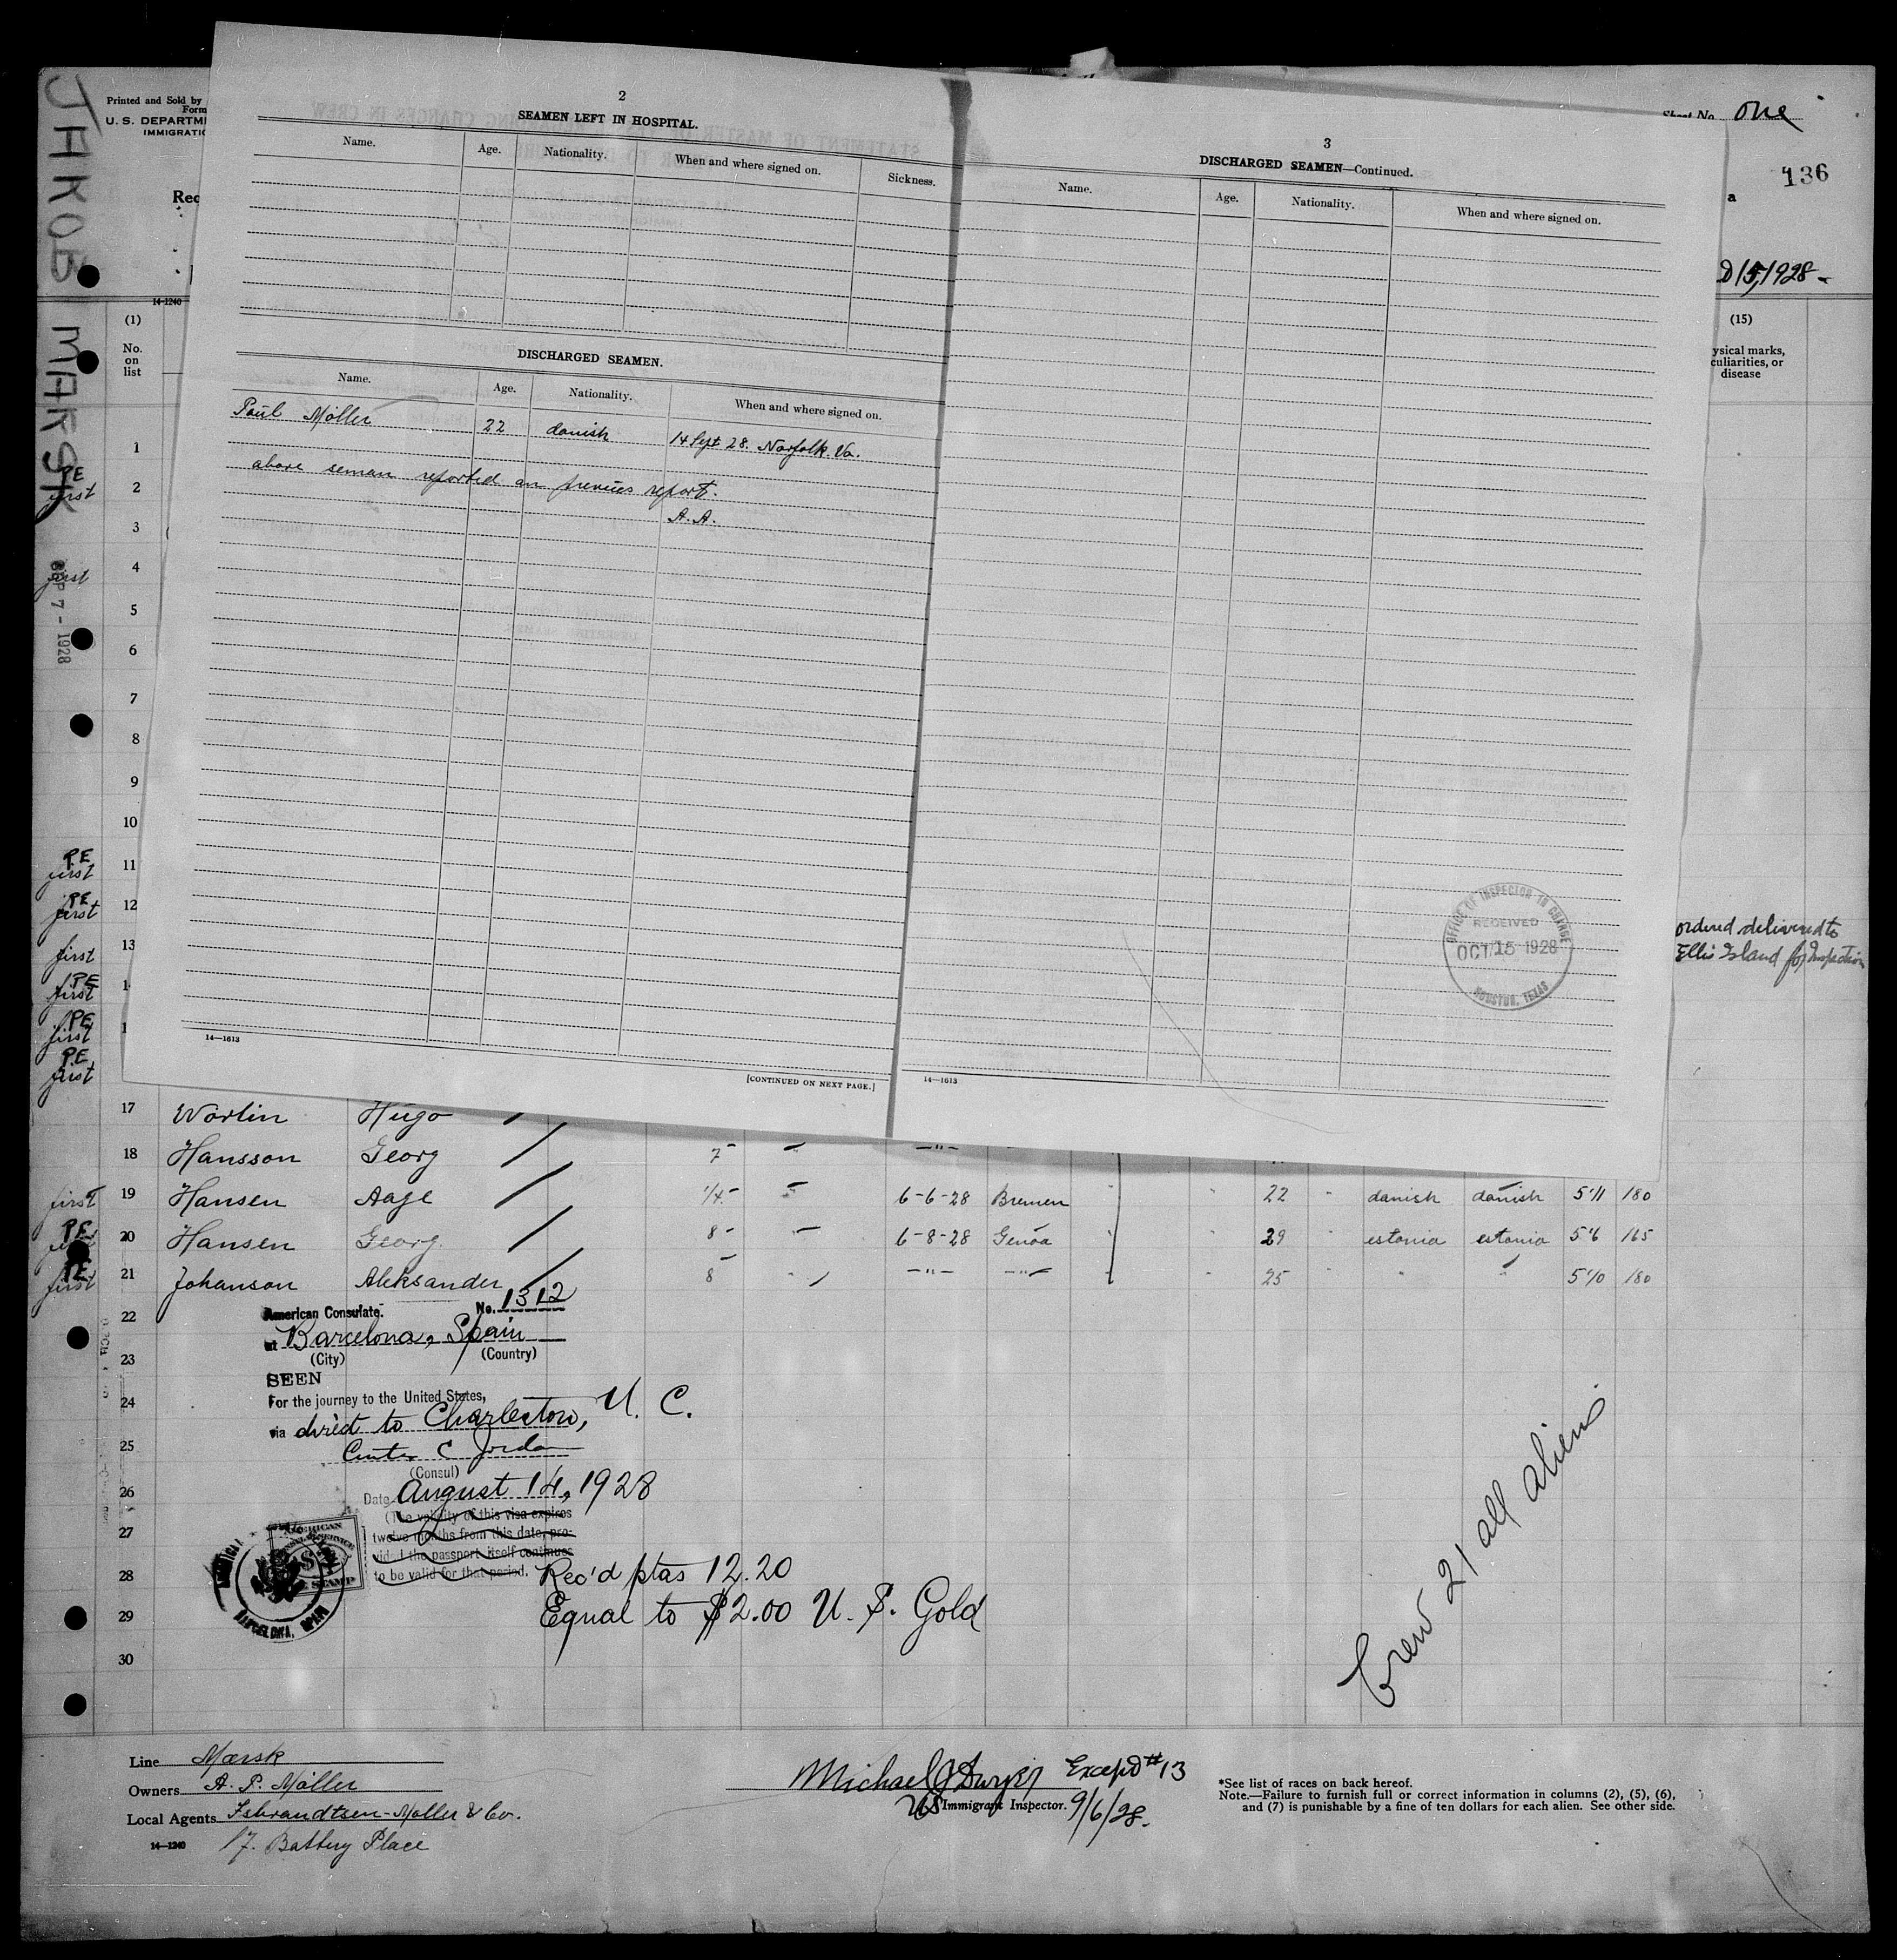 JAKOB MÆRSK
SEP 7 - 1928
Printed and Sold by
Form
U. S. DEPARTME
IMMIGRATIO
Rec
Sheet No. One
136
a
15, 1928 -
14-1240
(1)
No.
on
list
(15)
ysical marks,
culiarities, or
disease
2
SEAMEN LEFT IN HOSPITAL.
Name. Age. Nationality. When and where signed on. Sickness.
DISCHARGED SEAMEN.
Name. Age. Nationality. When and where signed on.
Paul Møller 22 danish 14 Sept 28. Norfolk. Va.
above seman reported an previes report.
A. A.
14—1613
[CONTINUED ON NEXT PAGE.]
3
DISCHARGED SEAMEN—Continued.
Name. Age. Nationality. When and where signed on.
OFFICE OF INSPECTOR IN CHARGE
RECEIVED
OCT 15 1928
HOUSTON, TEXAS
14—1613
1
PE
first 2
3
first 4
5
6
7
8
9
10
PE
first 11
PE
first 12
first 13
ordered delivered to
Ellis Island for Inspection
PE
first 1
PE
first 1
PE
first
17 Worlin Hugo
18 Hansson Georg 7 - —"—
first 19 Hansen Aage 1/4 - 6-6-28 Bremen 22 " danish danish 5'11 180
PE 20 Hansen Georg. 8 - 6-8-28 Genoa 29 " estonia estonia 5'6 165
PE
first 21 Johanson Aleksander 8 " —"— —"— 25 " " 5'10 180
22
23
24
25
26
27
28
29
30
American Consulate. No. 1312
at Barcelona, Spain
(City) (Country)
SEEN
For the journey to the United States,
via direct to Charleston, U. C.
C. Jordan
(Consul)
Date August 14, 1928
(The validity of this visa expires
twelve months from this date, pro-
vided the passport itself continues
to be valid for that period.
AMERICAN
SERVICE
$2
STAMP
BARCELONA, SPAIN
Rec'd ptas 12.20
Equal to $2.00 U. S. Gold
Crew 21 all aliens
Line Mærsk
Owners A. P. Møller
Local Agents Isbrandtsen-Moller & Co.
14-1240 17. Battery Place
Michael J Dwyer Except #13
US Immigrant Inspector. 9/6/28.
*See list of races on back hereof.
Note.—Failure to furnish full or correct information in columns (2), (5), (6),
and (7) is punishable by a fine of ten dollars for each alien. See other side.